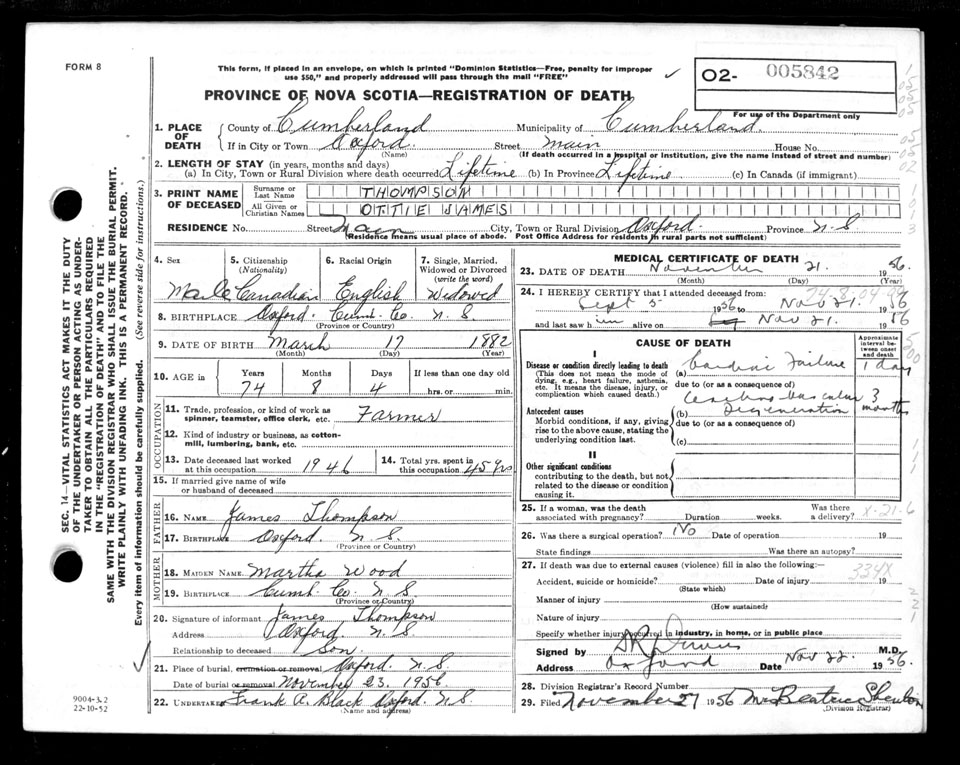 FORM 8
This form, if placed in an envelope, on which is printed "Dominion Statistics—Free, penalty for improper
use $50," and properly addressed will pass through the mail "FREE"
O2- 005842
For use of the Department only
PROVINCE OF NOVA SCOTIA—REGISTRATION OF DEATH
1. PLACE OF DEATH
County of Cumberland Municipality of Cumberland
If in City or Town Oxford Street main House No.
(Name) (If death occurred in a hospital or institution, give the name instead of street and number)
2. LENGTH OF STAY (in years, months and days)
(a) In City, Town or Rural Division where death occurred Lifetime (b) In Province Lifetime (c) In Canada (if immigrant)
3. PRINT NAME OF DECEASED
Surname or Last Name THOMPSON
All Given or Christian Names OTTIE JAMES
RESIDENCE No. Street Main City, Town or Rural Division Oxford Province N.S
(Residence means usual place of abode. Post Office Address for residents in rural parts not sufficient)
4. Sex Male
5. Citizenship (Nationality) Canadian
6. Racial Origin English
7. Single, Married, Widowed or Divorced (write the word) Widowed
8. BIRTHPLACE Oxford. Cumb. Co. N. S
(Province or Country)
9. DATE OF BIRTH March 17 1882
(Month) (Day) (Year)
10. AGE Years 74 Months 8 Days 4 If less than one day old hrs. or min.
OCCUPATION
11. Trade, profession, or kind of work as spinner, teamster, office clerk, etc. Farmer
12. Kind of industry or business, as cotton-mill, lumbering, bank, etc.
13. Date deceased last worked at this occupation 1946
14. Total yrs. spent in this occupation 45 yrs
15. If married give name of wife or husband of deceased
FATHER
16. NAME James Thompson
17. BIRTHPLACE Oxford. N. S.
(Province or Country)
MOTHER
18. MAIDEN NAME Martha Wood
19. BIRTHPLACE Cumb. Co. N. S
(Province or Country)
20. Signature of informant James Thompson
Address Oxford. N. S
Relationship to deceased Son.
21. Place of burial, cremation or removal Oxford. N. S
Date of burial or removal November 23. 1956
22. UNDERTAKER Frank A. Black Oxford. N.S.
(Name and address)
MEDICAL CERTIFICATE OF DEATH
23. DATE OF DEATH November 21. 1956.
24. I HEREBY CERTIFY that I attended deceased from:
Sept 5- 1956 to Nov 21. 1956
and last saw him alive on Nov 21. 1956
CAUSE OF DEATH
Approximate interval between onset and death
I
Disease or condition directly leading to death
(This does not mean the mode of dying, e.g., heart failure, asthenia, etc. It means the disease, injury, or complication which caused death.)
(a) Cardiac Failure 1 day
due to (or as a consequence of)
Antecedent causes
Morbid conditions, if any, giving rise to the above cause, stating the underlying condition last.
(b) Degeneration 3 months
due to (or as a consequence of)
(c)
II
Other significant conditions
contributing to the death, but not related to the disease or condition causing it.
25. If a woman, was the death associated with pregnancy? Duration weeks. Was there a delivery?
X-21-6
26. Was there a surgical operation? No Date of operation 19
State findings Was there an autopsy?
27. If death was due to external causes (violence) fill in also the following:—
334X
Accident, suicide or homicide? Date of injury 19
(State which)
Manner of injury
(How sustained)
Nature of injury
Specify whether injury occurred in industry, in home, or in public place
Signed by M.D.
Address Oxford Date Nov 22. 1956.
28. Division Registrar's Record Number
29. Filed November 27 1956 Mrs Beatrice
(Division Registrar)
SEC. 14—VITAL STATISTICS ACT MAKES IT THE DUTY
OF THE UNDERTAKER OR PERSON ACTING AS UNDER-
TAKER TO OBTAIN ALL THE PARTICULARS REQUIRED
IN THE "REGISTRATION OF DEATH" AND TO FILE THE
SAME WITH THE DIVISION REGISTRAR WHO SHALL ISSUE THE BURIAL PERMIT.
WRITE PLAINLY WITH UNFADING INK. THIS IS A PERMANENT RECORD.
Every item of information should be carefully supplied. (See reverse side for instructions.)
22-10-52